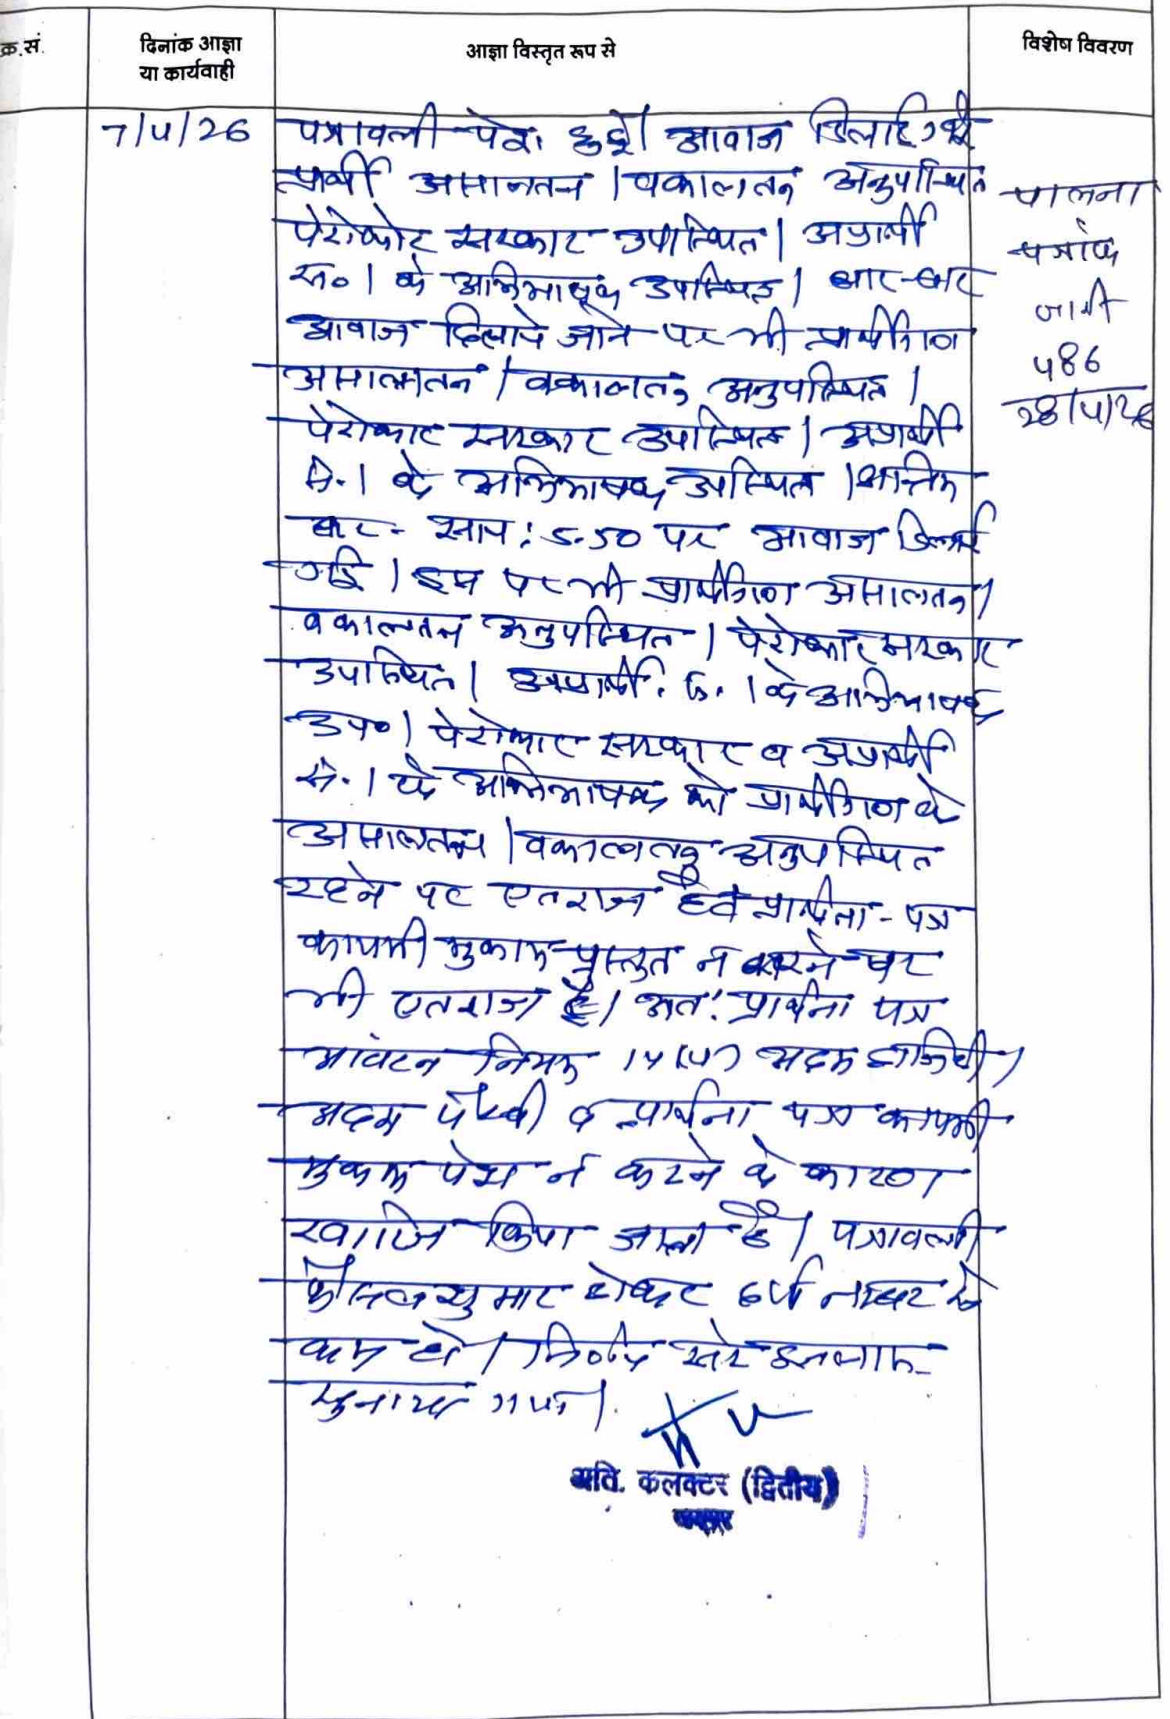 क्र.सं.
दिनांक आज्ञा
या कार्यवाही
आज्ञा विस्तृत रूप से
विशेष विवरण
7/4/26
पत्रावली पेश हुई। आवाज दिलाई गई
प्रार्थी असालतन/वकालतन अनुपस्थित
पेरोकार सरकार उपस्थित। अप्रार्थी
सं० 1 के अभिभाषक उपस्थित। बार-बार
आवाज दिलाये जाने पर भी प्रार्थीगण
असालतन/वकालतन अनुपस्थित।
पेरोकार सरकार उपस्थित। अप्रार्थी
सं. 1 के अभिभाषक उपस्थित। अन्तिम
बार- सायं: 5.50 पर आवाज दिलाई
गई। इस पर भी प्रार्थीगण असालतन/
वकालतन अनुपस्थित। पेरोकार सरकार
उपस्थित। अप्रार्थी सं. 1 के अभिभाषक
उप०। पेरोकार सरकार व अप्रार्थी
सं. 1 के अभिभाषक को प्रार्थीगण के
असालतन/वकालतन अनुपस्थित
रहने पर एतराज है व प्रार्थना-पत्र
कायमी मुकाम प्रस्तुत न करने पर
भी एतराज है। अत: प्रार्थना पत्र
आवंटन नियम 14(4) अदम हाजिरी/
अदम पैरवी व प्रार्थना पत्र कायमी
मुकाम पेश न करने के कारण
खारिज किया जाता है। पत्रावली
फैसल शुमार होकर दर्ज नम्बर से
कम हो। निर्णय सरे इजलास
सुनाया गया।
पालना
पत्रांक
जारी
486
28/4/26
अति. कलक्टर (द्वितीय)